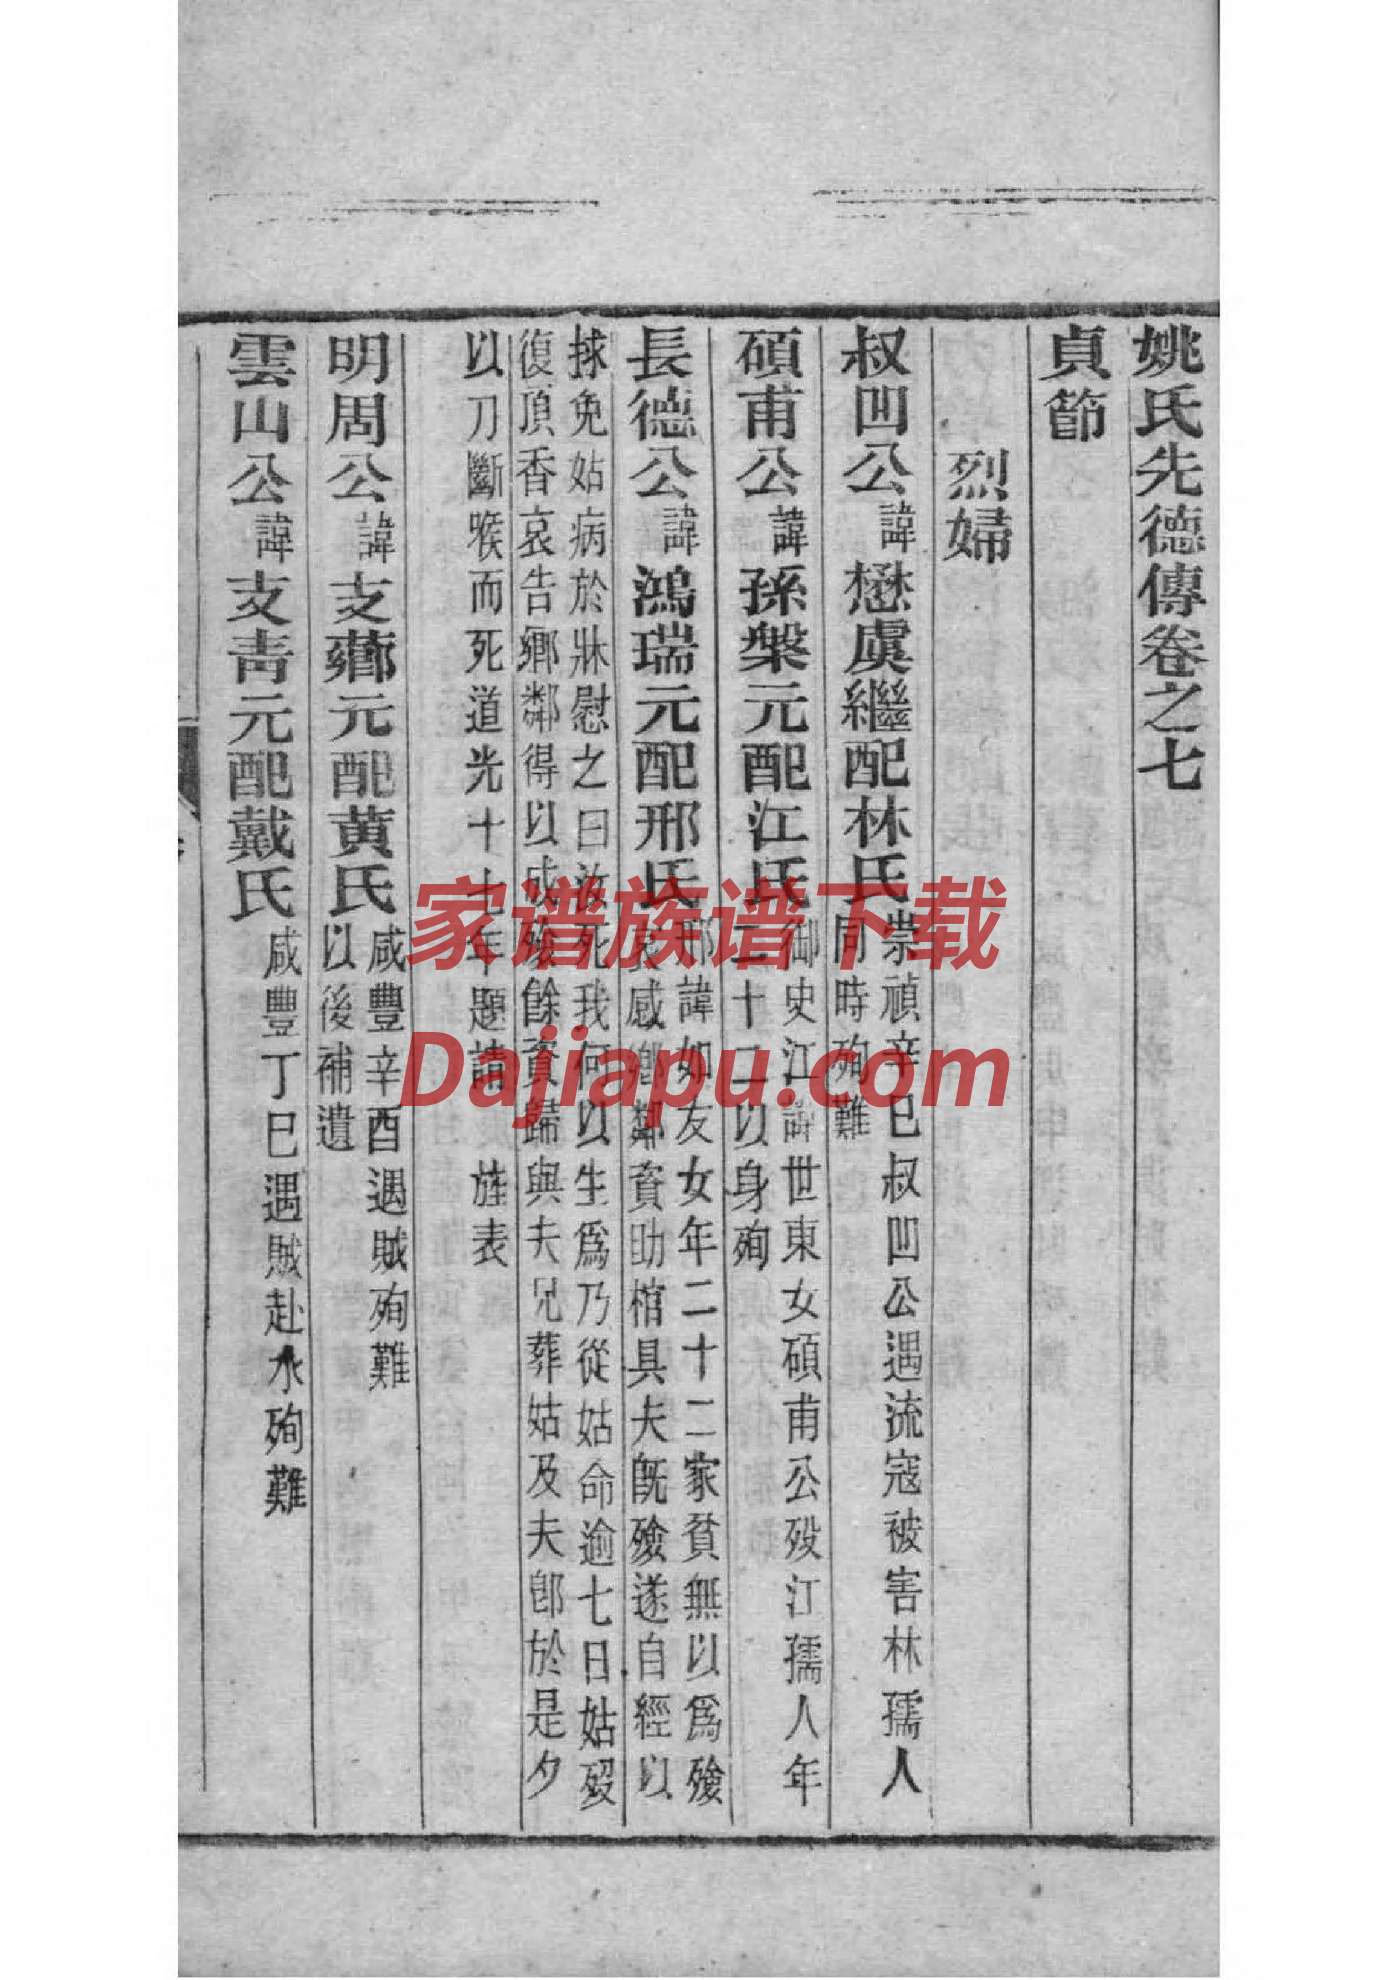 姚氏先德傳卷之七
貞節
烈婦
叔凹公諱懋虞繼配林氏
崇禎辛巳叔凹公遇流寇被害林孺人
同時殉難
碩甫公諱孫槃元配江氏
御史江諱世東女碩甫公歿江孺人年
二十二以身殉
長德公諱鴻瑞元配邢氏
邢諱如友女年二十二家貧無以爲殮
哀感鄉鄰資助棺具夫旣殮遂自經以
捄免姑病於牀慰之曰汝死我何以生爲乃從姑命逾七日姑歿
復頂香哀告鄉鄰得以成殮餘資歸與夫兄葬姑及夫卽於是夕
以刀斷喉而死道光十七年題請 旌表
明周公諱支薌元配黃氏
咸豐辛酉遇賊殉難
以後補遺
雲山公諱支青元配戴氏
咸豐丁巳遇賊赴水殉難
家谱族谱下载
Dajiapu.com